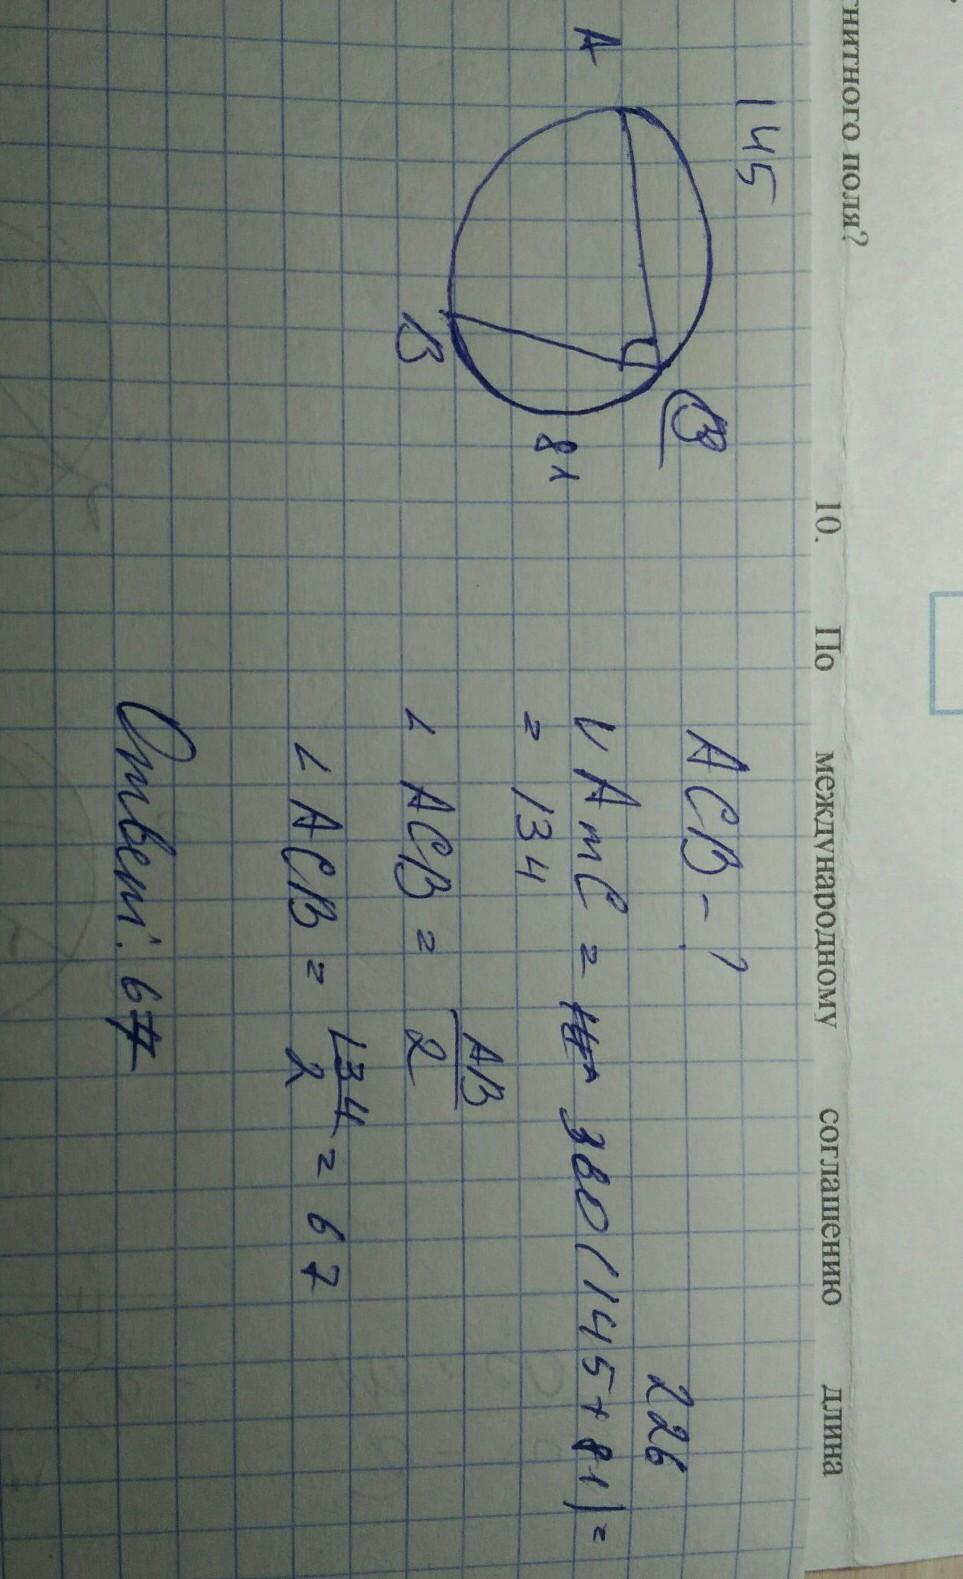 гнитного поля?
10. По международному соглашению длина
145
A
B
81
ACB - ?
226
∪ AmC = 360(145+81) =
= 134
∠ ACB = AB/2
∠ ACB = 134/2 = 67
Ответ: 67